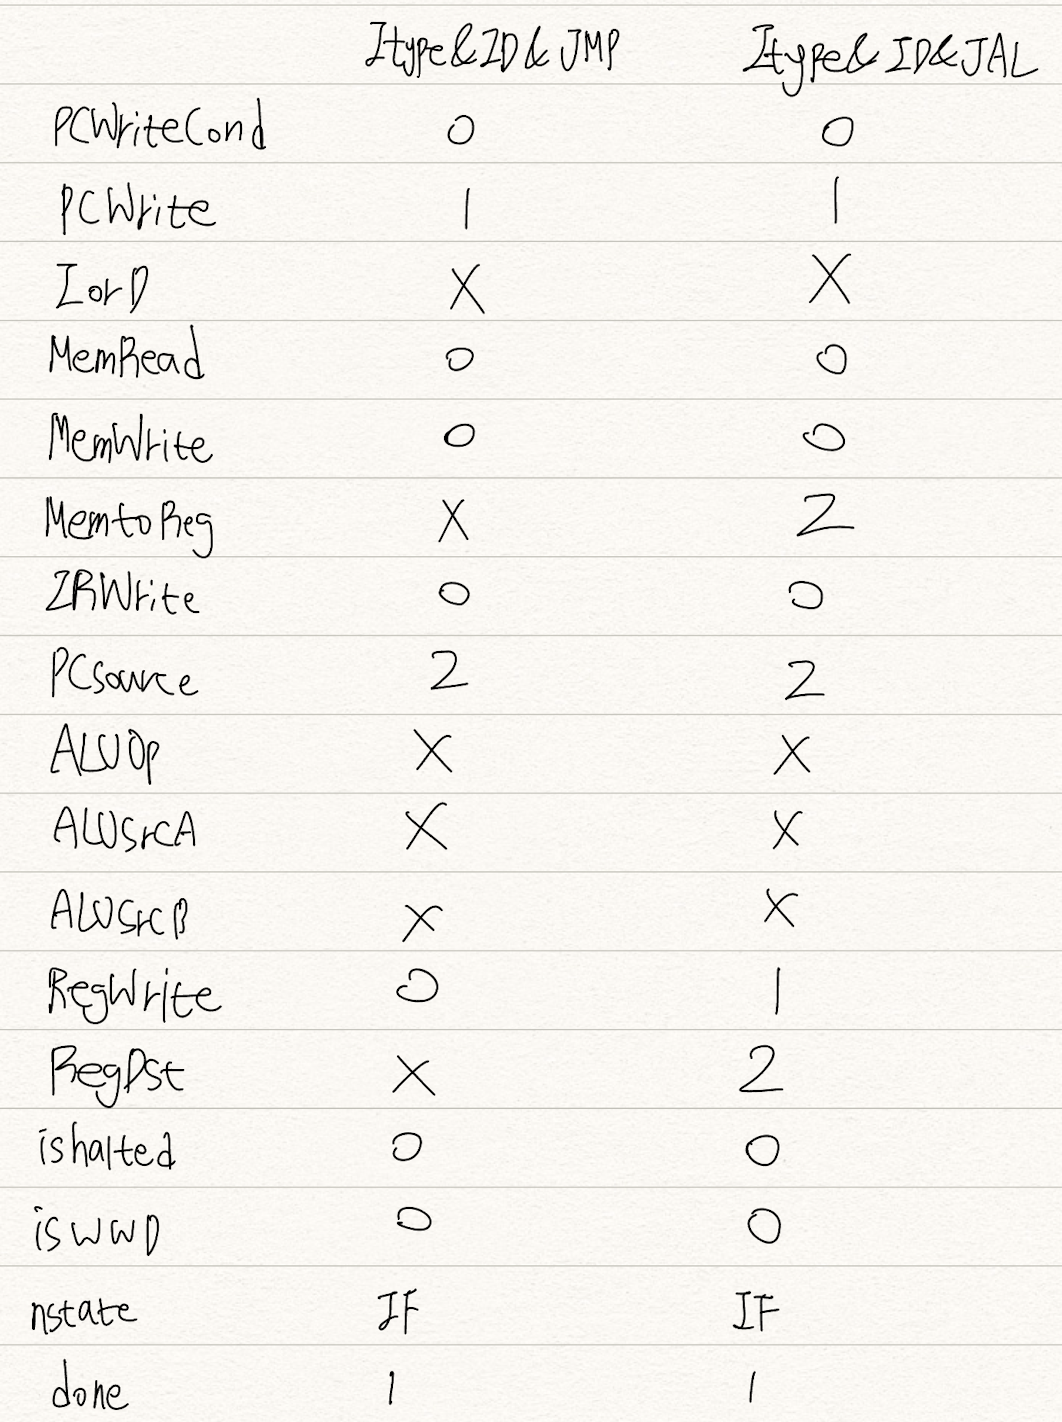 Itype&ID&JMP Itype&ID&JAL
PCWriteCond 0 0
PCWrite 1 1
IorD X X
MemRead 0 0
MemWrite 0 0
MemtoReg X 2
IRWrite 0 0
PCsource 2 2
ALUOp X X
ALUSrcA X X
ALUSrcB X X
RegWrite 0 1
RegDst X 2
ishalted 0 0
isWWD 0 0
nstate IF IF
done 1 1